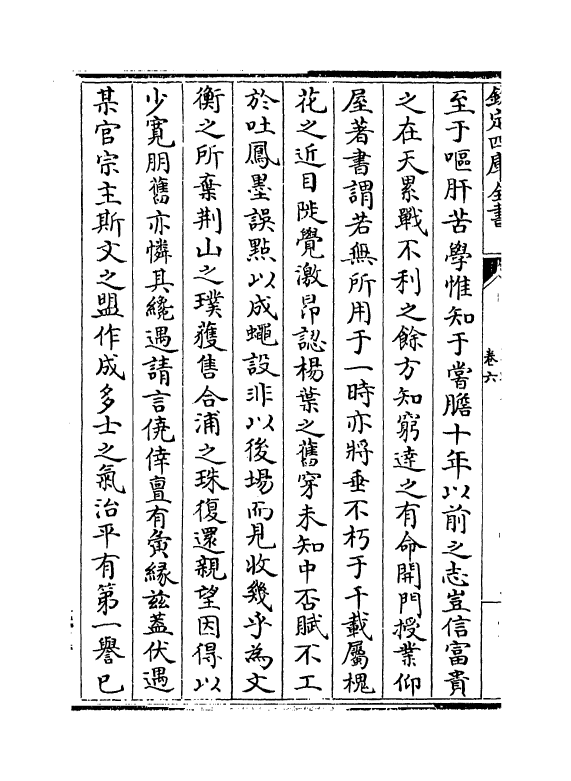 欽定四庫全書
卷六
至于嘔肝苦學惟知于嘗膽十年以前之志豈信富貴
之在天累戰不利之餘方知窮達之有命開門授業仰
屋著書謂若無所用于一時亦將垂不朽于千載屬槐
花之近目陡覺激昻認楊葉之舊穿未知中否賦不工
於吐鳳墨誤點以成蠅設非以後場而見收幾乎為文
衡之所棄荆山之璞獲售合浦之珠復還親望因得以
少寛朋舊亦憐其纔遇請言僥倖亶有夤緣兹蓋伏遇
某官宗主斯文之盟作成多士之氣治平有第一譽已